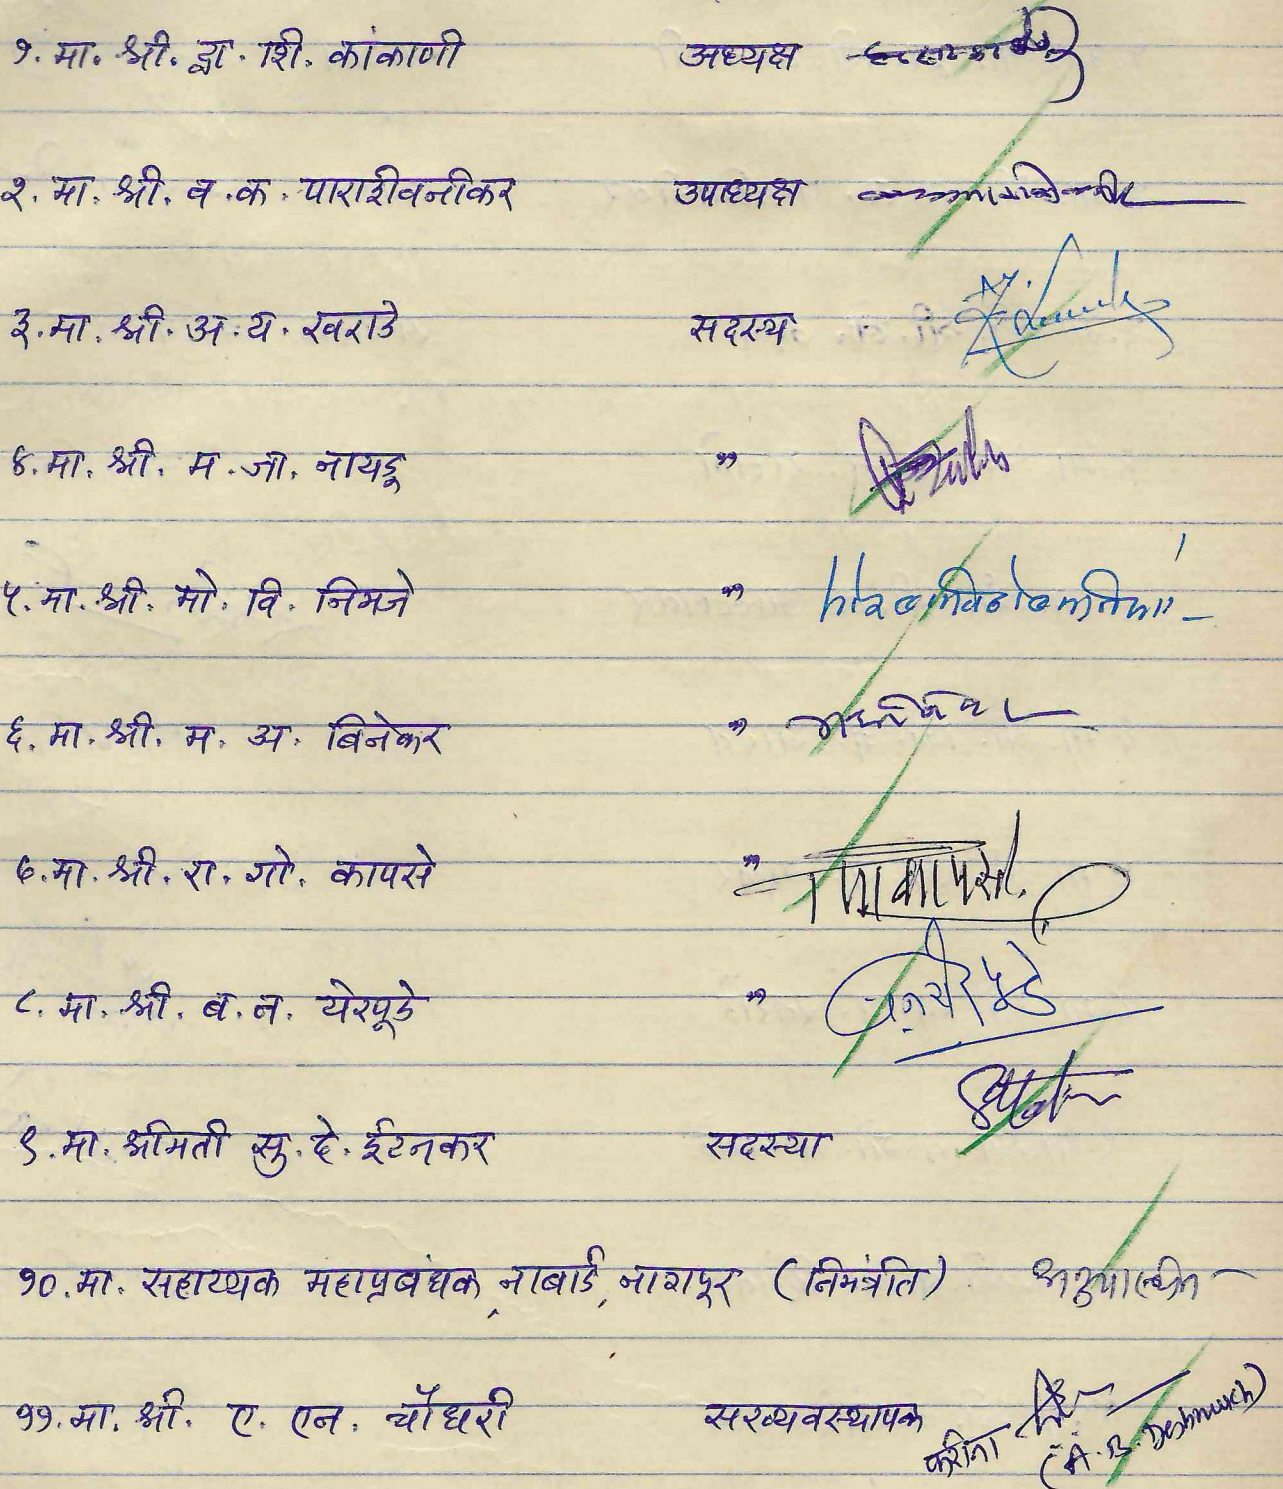 १. मा. श्री. द्वा. शि. कांकाणी अध्यक्ष
२. मा. श्री. व. क. पाराशीवनीकर उपाध्यक्ष
३. मा. श्री. अ. य. खराडे सदस्य
४. मा. श्री. म. जा. नायडू "
५. मा. श्री. मो. वि. निमजे "
६. मा. श्री. म. अ. बिनेकर "
७. मा. श्री. रा. गो. कापसे "
८. मा. श्री. ब. न. येरपूडे " ब.न.येरपूडे
९. मा. श्रीमती सु. दे. ईटनकर सदस्या
१०. मा. सहाय्यक महाप्रबंधक, नाबार्ड, नागपूर (निमंत्रीत) अनुपस्थीत
११. मा. श्री. ए. एन. चौधरी सरव्यवस्थापक करीता
(A. B. Deshmukh)